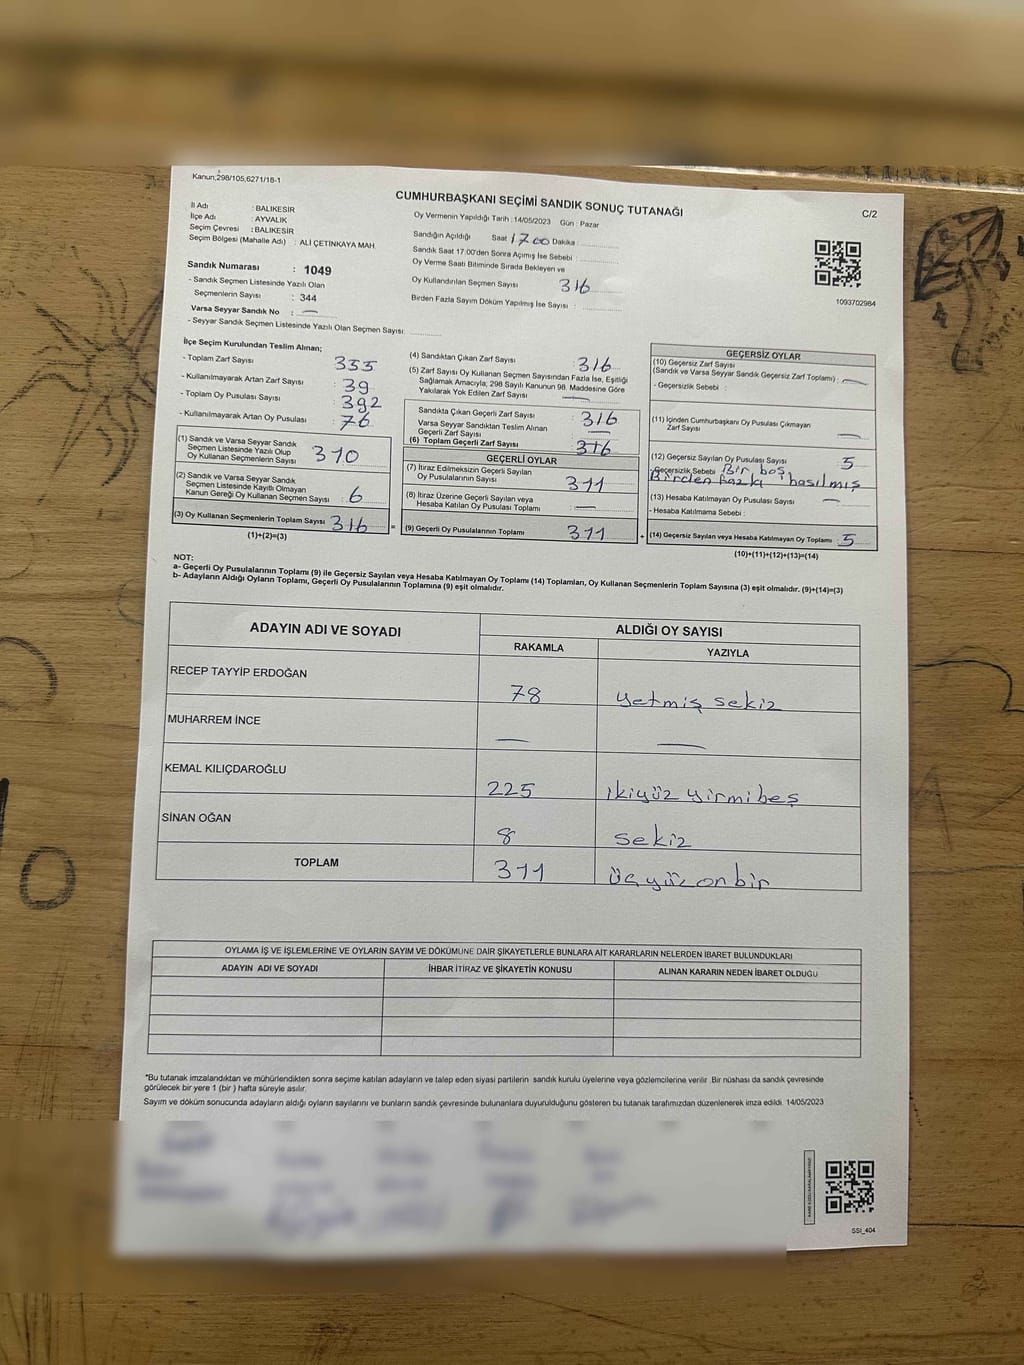 Kanun;298/105;6271/18-1
CUMHURBAŞKANI SEÇİMİ SANDIK SONUÇ TUTANAĞI
C/2
İl Adı : BALIKESİR
İlçe Adı : AYVALIK
Seçim Çevresi : BALIKESİR
Seçim Bölgesi (Mahalle Adı) : ALİ ÇETİNKAYA MAH.
Sandık Numarası : 1049
- Sandık Seçmen Listesinde Yazılı Olan
Seçmenlerin Sayısı : 344
Varsa Seyyar Sandık No : —
- Seyyar Sandık Seçmen Listesinde Yazılı Olan Seçmen Sayısı: ............
Oy Vermenin Yapıldığı Tarih : 14/05/2023 Gün : Pazar
Sandığın Açıldığı Saat 17 00 Dakika :............
Sandık Saat 17:00'den Sonra Açımış İse Sebebi :............
Oy Verme Saati Bitiminde Sırada Bekleyen ve
Oy Kullandırılan Seçmen Sayısı : 316
Birden Fazla Sayım Döküm Yapılmış İse Sayısı :............
1093702984
İlçe Seçim Kurulundan Teslim Alınan;
- Toplam Zarf Sayısı : 355
- Kullanılmayarak Artan Zarf Sayısı : 39
- Toplam Oy Pusulası Sayısı : 392
- Kullanılmayarak Artan Oy Pusulası : 76
(1) Sandık ve Varsa Seyyar Sandık
Seçmen Listesinde Yazılı Olup
Oy Kullanan Seçmenlerin Sayısı : 310
(2) Sandık ve Varsa Seyyar Sandık
Seçmen Listesinde Kayıtlı Olmayan
Kanun Gereği Oy Kullanan Seçmen Sayısı : 6
(3) Oy Kullanan Seçmenlerin Toplam Sayısı : 316
(1)+(2)=(3)
=
(4) Sandıktan Çıkan Zarf Sayısı : 316
(5) Zarf Sayısı Oy Kullanan Seçmen Sayısından Fazla İse, Eşitliği
Sağlamak Amacıyla; 298 Sayılı Kanunun 98. Maddesine Göre
Yakılarak Yok Edilen Zarf Sayısı : —
Sandıkta Çıkan Geçerli Zarf Sayısı : 316
Varsa Seyyar Sandıktan Teslim Alınan
Geçerli Zarf Sayısı : —
(6) Toplam Geçerli Zarf Sayısı : 316
GEÇERLİ OYLAR
(7) İtiraz Edilmeksizin Geçerli Sayılan
Oy Pusulalarının Sayısı : 311
(8) İtiraz Üzerine Geçerli Sayılan veya
Hesaba Katılan Oy Pusulası Toplamı : —
(9) Geçerli Oy Pusulalarının Toplamı : 311
+
GEÇERSİZ OYLAR
(10) Geçersiz Zarf Sayısı
(Sandık ve Varsa Seyyar Sandık Geçersiz Zarf Toplamı) : —
- Geçersizlik Sebebi :
(11) İçinden Cumhurbaşkanı Oy Pusulası Çıkmayan
Zarf Sayısı : —
(12) Geçersiz Sayılan Oy Pusulası Sayısı : 5
- Geçersizlik Sebebi : Bir boş,
Birden fazla basılmış
(13) Hesaba Katılmayan Oy Pusulası Sayısı : —
- Hesaba Katılmama Sebebi :
(14) Geçersiz Sayılan veya Hesaba Katılmayan Oy Toplamı : 5
(10)+(11)+(12)+(13)=(14)
NOT:
a- Geçerli Oy Pusulalarının Toplamı (9) ile Geçersiz Sayılan veya Hesaba Katılmayan Oy Toplamı (14) Toplamları, Oy Kullanan Seçmenlerin Toplam Sayısına (3) eşit olmalıdır. (9)+(14)=(3)
b- Adayların Aldığı Oyların Toplamı, Geçerli Oy Pusulalarının Toplamına (9) eşit olmalıdır.
ADAYIN ADI VE SOYADI ALDIĞI OY SAYISI
RAKAMLA YAZIYLA
RECEP TAYYİP ERDOĞAN 78 yetmiş sekiz
MUHARREM İNCE — —
KEMAL KILIÇDAROĞLU 225 ikiyüz yirmibeş
SİNAN OĞAN 8 sekiz
TOPLAM 311 üçyüz onbir
OYLAMA İŞ VE İŞLEMLERİNE VE OYLARIN SAYIM VE DÖKÜMÜNE DAİR ŞİKAYETLERLE BUNLARA AİT KARARLARIN NELERDEN İBARET BULUNDUKLARI
ADAYIN ADI VE SOYADI İHBAR İTİRAZ VE ŞİKAYETİN KONUSU ALINAN KARARIN NEDEN İBARET OLDUĞU
*Bu tutanak imzalandıktan ve mühürlendikten sonra seçime katılan adayların ve talep eden siyasi partilerin sandık kurulu üyelerine veya gözlemcilerine verilir. Bir nüshası da sandık çevresinde
görülecek bir yere 1 (bir ) hafta süreyle asılır.
Sayım ve döküm sonucunda adayların aldığı oyların sayılarını ve bunların sandık çevresinde bulunanlara duyurulduğunu gösteren bu tutanak tarafımızdan düzenlenerek imza edildi. 14/05/2023
SSI_404